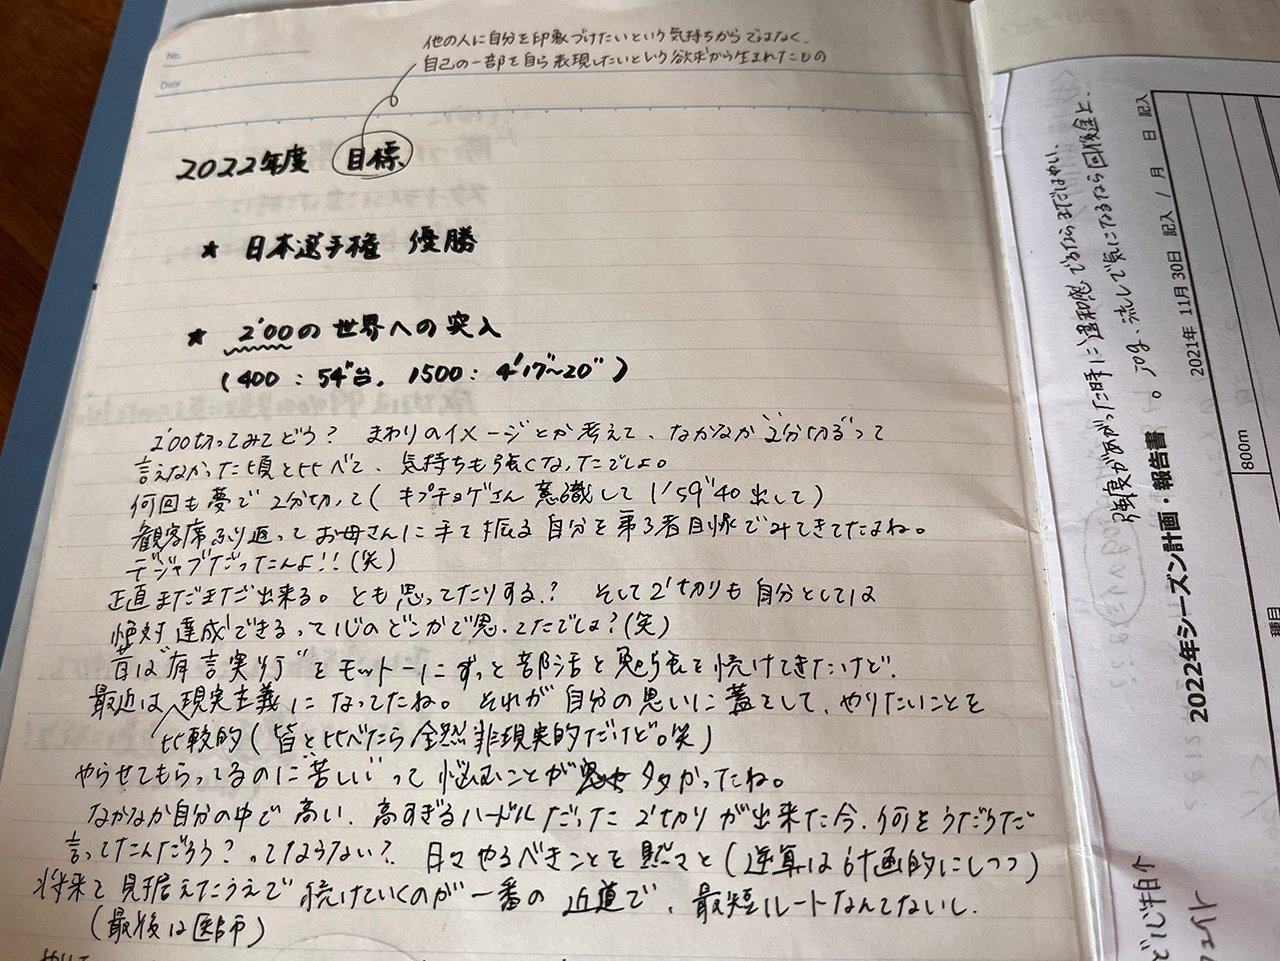 No.
Date
他の人に自分を印象づけたいという気持ちからではなく、
自己の一部を自ら表現したいという欲求から生まれたもの
2022年度 目標
★ 日本選手権 優勝
★ 2'00の世界への突入
(400 : 54"台, 1500 : 4'17"~20")
2'00切ってみてどう? まわりのイメージとか考えて、なかなか"2分切る"って
言えなかった頃と比べて、気持ちも強くなったでしょ。
何回も夢で2分切って(キプチョゲさん意識して1'59"40出して)
観客席ふり返ってお母さんに手を振る自分を第3者目線でみてきてたよね。
デジャブだったんよ!!(笑)
正直まだまだ出来る。とも思ってたりする? そして2'切りも自分としては
絶対達成できるって心のどこかで思ってたでしょ?(笑)
昔は"有言実行"をモットーにずっと部活と勉強を続けてきたけど、
最近は現実主義になってたね。それが自分の思いに蓋をして、やりたいことを
比較的(皆と比べたら全然非現実的だけど。笑)
やらせてもらってるのに"苦しい"って悩むことが多かったね。
なかなか自分の中で高い、高すぎるハードルだった2'切りが出来た今、何をうだうだ
言ってたんだろう?ってならない? 日々やるべきことを黙々と(逆算は計画的にしつつ)
将来を見据えたうえで続けていくのが一番の近道で、最短ルートなんてないし、
(最後は医師)
強度があがった時に違和感でるならまだはやい、
jog、流しで気になるなら回復途上、
2022年シーズン計画・報告書
2021年 11月 30日 記入 / 月 日 記入
800m
種目